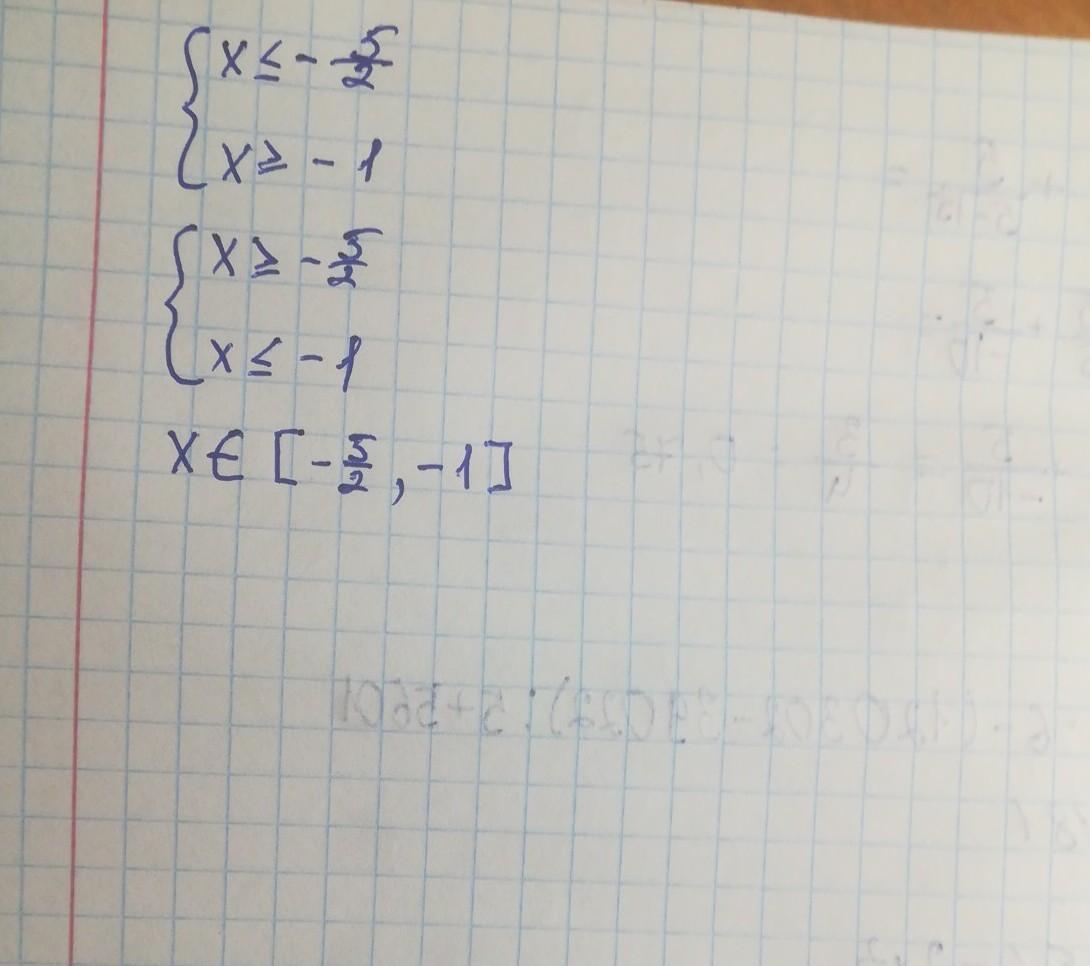 { x ≤ - 5/2
x ≥ - 1
{ x ≥ - 5/2
x ≤ - 1
x ∈ [- 5/2 , -1]